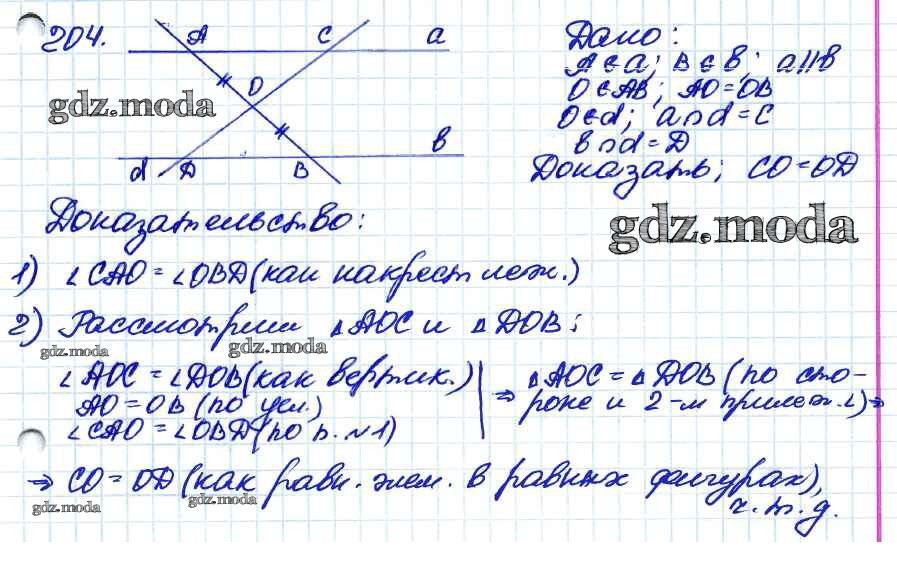 204.
A C a
O
gdz.moda
b
d D B
Дано:
A ∈ a; B ∈ b; a∥b
O ∈ AB; AO = OB
O ∈ d; a∩d = C
b∩d = D
Доказать; CO = OD
gdz.moda
Доказательство:
1) ∠CAO = ∠OBD (как накрест леж.)
2) Рассмотрим △AOC и △DOB:
gdz.moda gdz.moda
∠AOC = ∠DOB (как вертик.)
AO = OB (по усл.)
∠CAO = ∠OBD (по п. №1)
⇒ △AOC = △DOB (по сто-
роне и 2-м прилеж. ∠) ⇒
⇒ CO = OD (как равн. элем. в равных фигурах),
gdz.moda gdz.moda
ч.т.д.